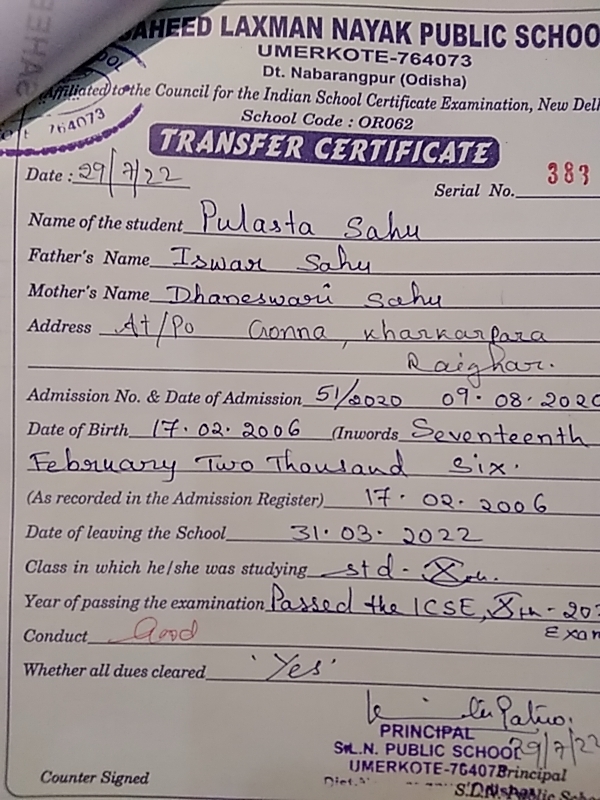 SAHEED LAXMAN NAYAK PUBLIC SCHOO
UMERKOTE-764073
Dt. Nabarangpur (Odisha)
Affiliated to the Council for the Indian School Certificate Examination, New Delh
School Code : OR062
764073
TRANSFER CERTIFICATE
Date : 29/7/22
Serial No. 383
Name of the student Pulasta Sahu
Father's Name Iswar Sahu
Mother's Name Dhaneswari Sahu
Address At/Po Gonna, Kharkarpara
Raighar.
Admission No. & Date of Admission 51/2020 09.08.2020
Date of Birth 17.02.2006 (Inwords Seventeenth
February Two Thousand Six.
(As recorded in the Admission Register) 17.02.2006
Date of leaving the School 31.03.2022
Class in which he/she was studying std - Xth.
Year of passing the examination Passed the ICSE, Xth - 202
Exam
Conduct Good
Whether all dues cleared 'Yes'
29/7/22
PRINCIPAL
S.L.N. PUBLIC SCHOOL
UMERKOTE-764073
Principal
Counter Signed